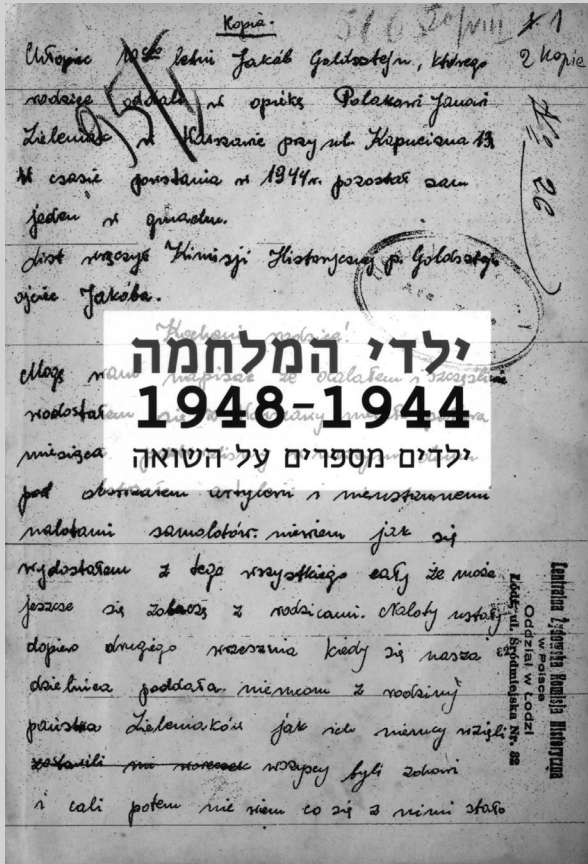 Kopia.
Chłopiec letni Jakób Goldsztejn, którego
2 Kopie
rodzice oddali w opiekę Polakowi Janowi
Zieleniak w Warszawie przy ul. Kapucizna 13
W czasie powstania w 1944r. pozostał sam
jeden w
№ 26
List wręczył Komisji Historycznej p.
ojciec Jakóba.
Kochani rodzice!
ילדי המלחמה
1948-1944
ילדים מספרים על השואה
Mogę wam napisać że ocalałem i
miesiąca
pod obstrzałem artylerii i nieustannemi
nalotami samolotów. niewiem jak się
wydostałem z tego wszystkiego cały że może
jeszcze się zobaczę z rodzicami. Naloty ustały
dopiero drugiego wrzesznia kiedy się nasza
dzielnica poddała. niemcom z rodziny
państwa Zieleniaków jak ich niemcy wzięli
wszyscy byli zdrowi
i cali potem nie wiem co się z nimi stało
Centralna Żydowska Komisja Historyczna
w Polsce
Oddział w Łodzi
Łódź, ul. Śródmiejska Nr. 82